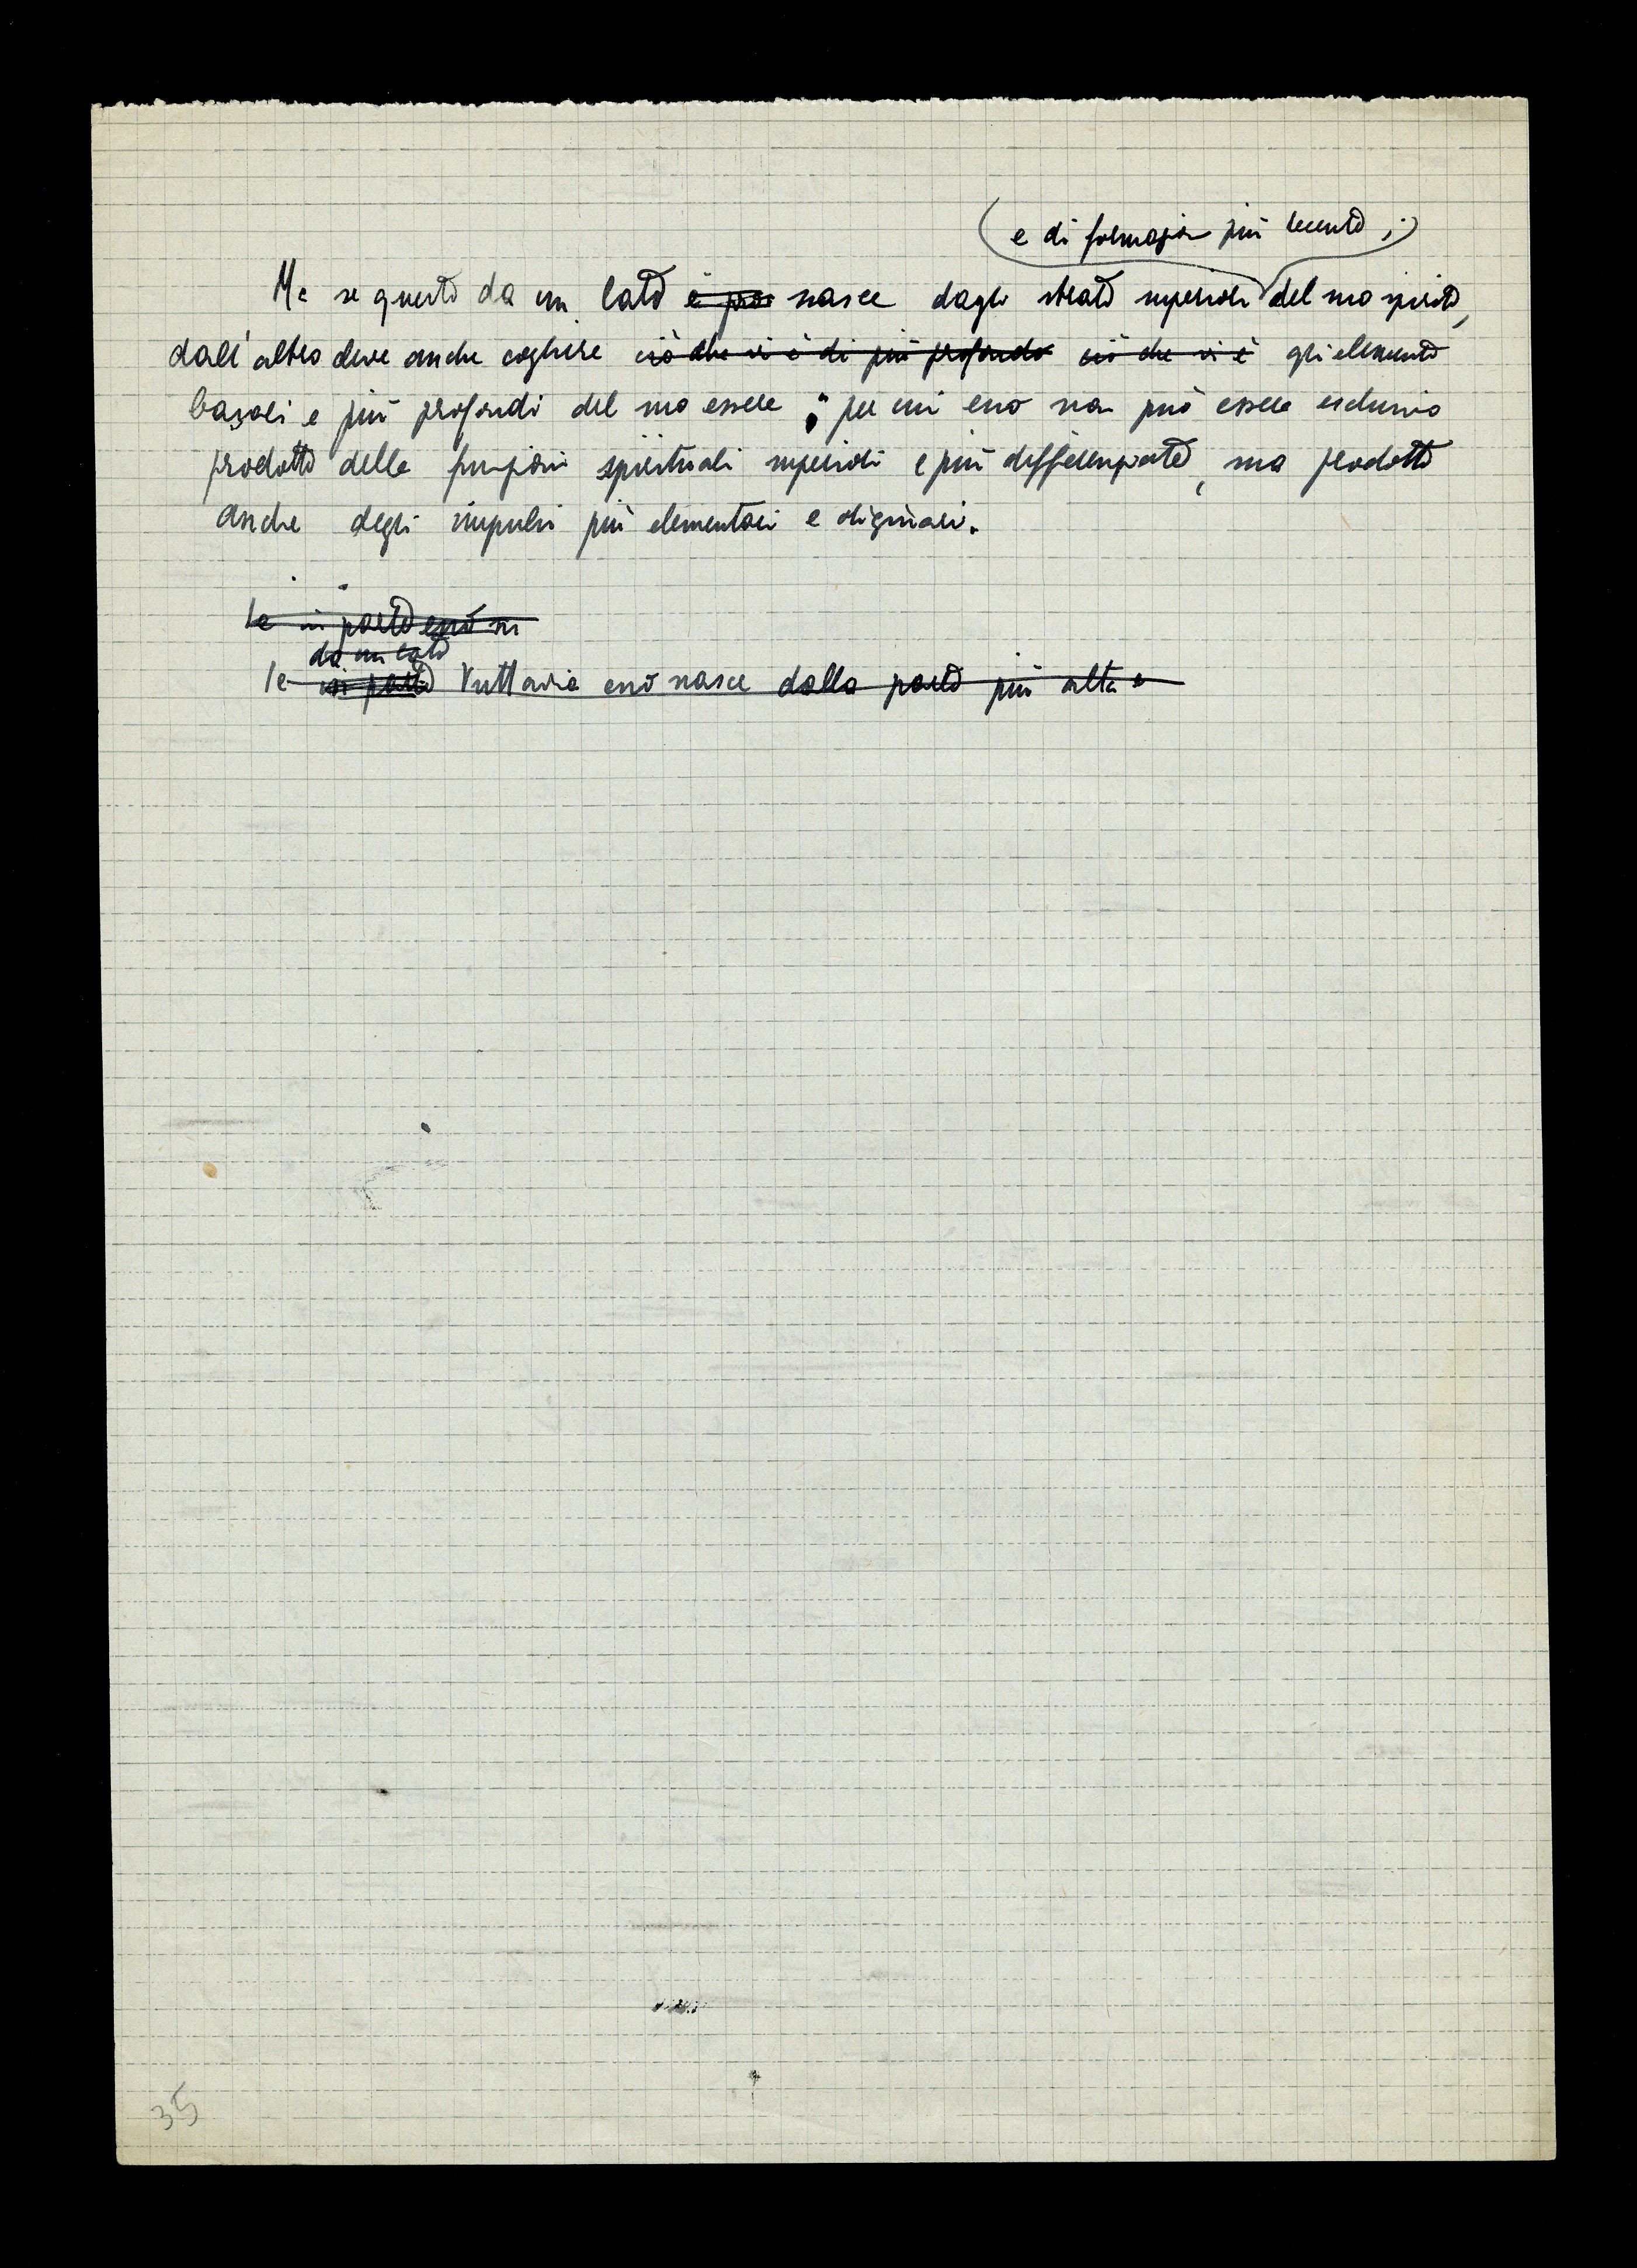 e di formazione più recente ,
Ma se questo da un lato è pro nasce dagli strati superiori del suo spirito,
dall'altro deve anche cogliere ciò che vi è di più profondo ciò che vi è gli elementi
basali e più profondi del suo essere ; per cui esso non può essere esclusivo
prodotto delle funzioni spirituali superiori e più differenziate, ma prodotto
anche degli impulsi più elementari e originari.
Se in parte esso
da un lato
Se in parte tuttavia esso nasce dalla parte più alta e
35